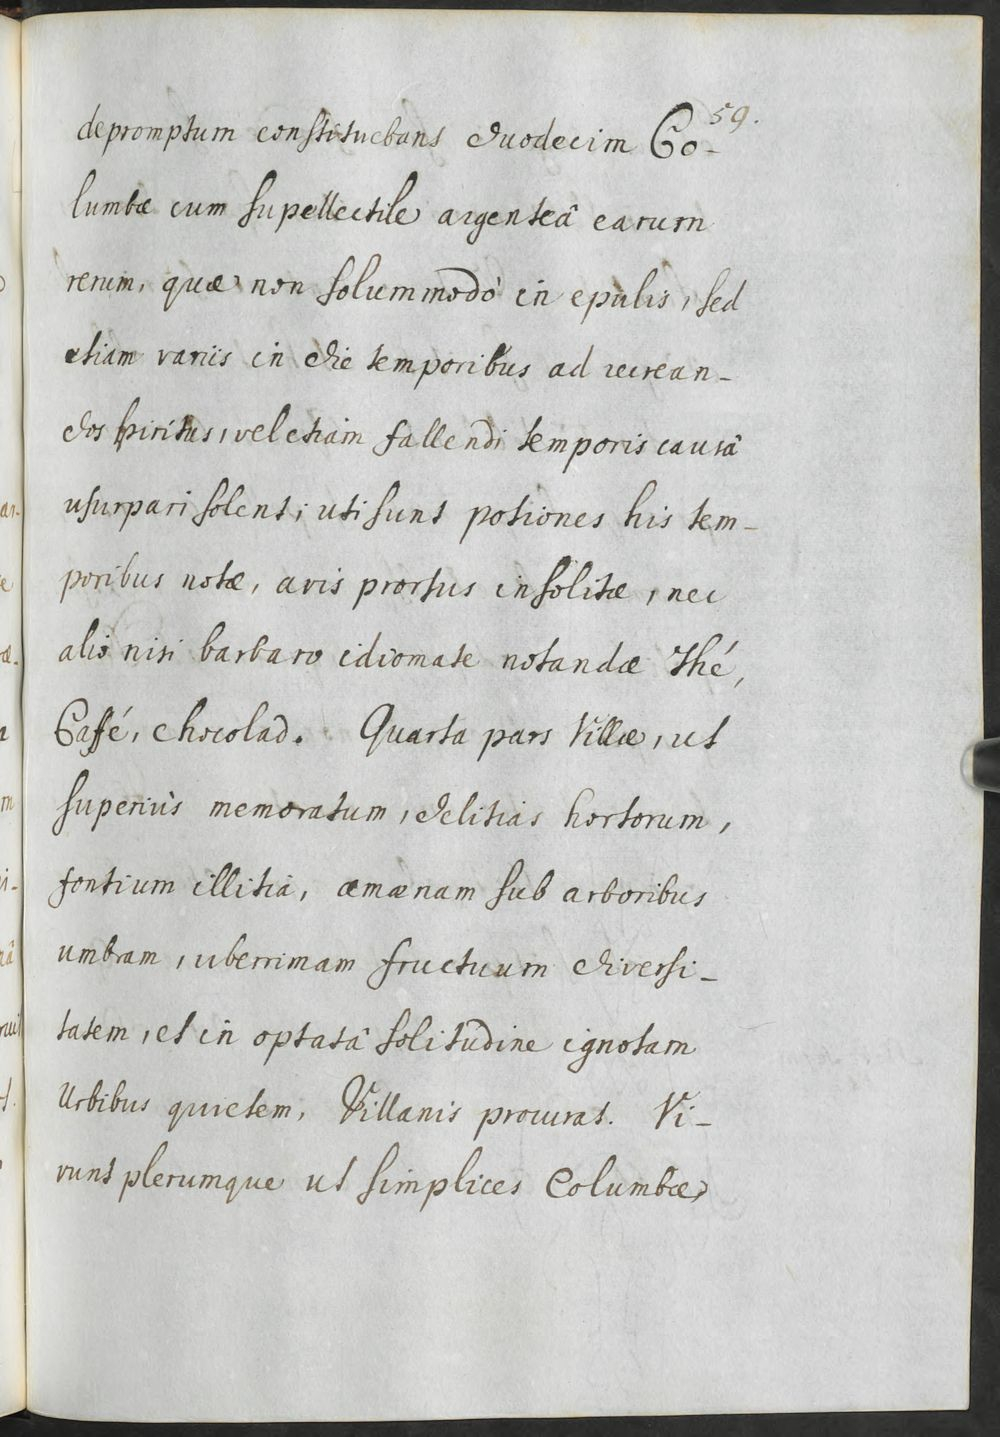 59.
depromptum constituebant duodecim Co-
lumbæ cum supellectile argenteâ earum
rerum, quæ non solummodò in epulis, sed
etiam variis in die temporibus ad recrean-
dos spiritus, vel etiam fallendi temporis causâ
usurpari solent; uti sunt potiones his tem-
poribus notæ, avis prorsus insolitæ, nec
alio nisi barbaro idiomate notandæ Thé,
Caffé, chocolad. Quarta pars Villæ, ut
superiùs memoratum, delitias hortorum,
fontium illitia, amænam sub arboribus
umbram, uberrimam fructuum diversi-
tatem, et in optatâ solitudine ignotam
Urbibus quietem, Villanis procurat. Vi-
vunt plerumque ut simplices Columbæ,